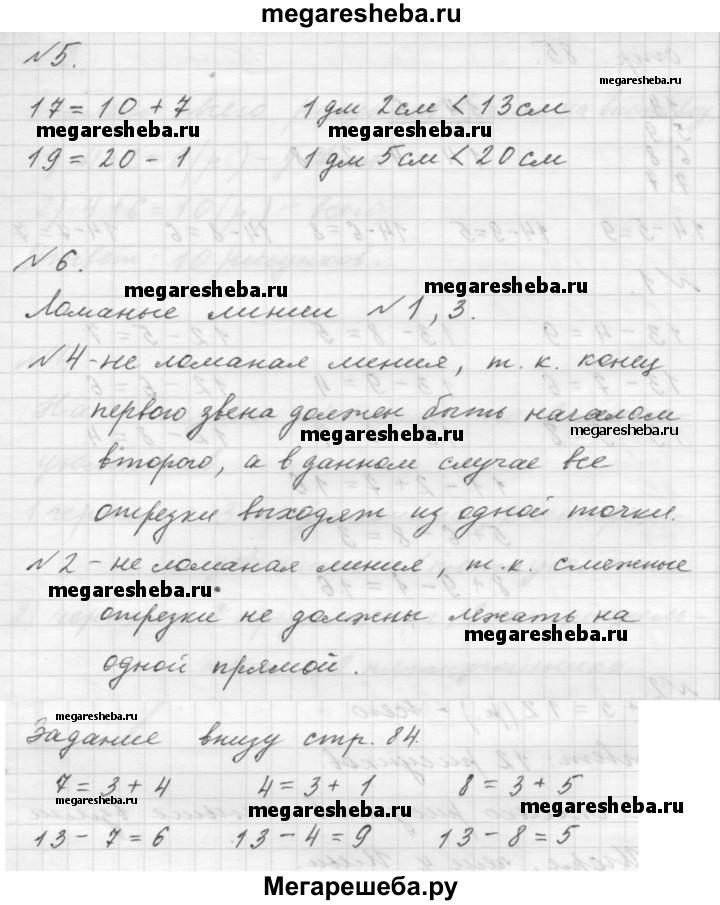 megaresheba.ru
№5.
megaresheba.ru
17 = 10 + 7 1 дм 2 см < 13 см
megaresheba.ru megaresheba.ru
19 = 20 - 1 1 дм 5 см < 20 см
14-5=9 14-9=5 14-6=8 14-8=6
№6.
megaresheba.ru megaresheba.ru
Ломаные линии №1, 3.
№4 - не ломаная линия, т. к. конец
первого звена должен быть началом
megaresheba.ru megaresheba.ru
второго, а в данном случае все
отрезки выходят из одной точки.
№2 - не ломаная линия, т. к. смежные
megaresheba.ru
отрезки не должны лежать на
megaresheba.ru
одной прямой.
megaresheba.ru
Задание внизу стр. 84.
7 = 3 + 4 4 = 3 + 1 8 = 3 + 5
megaresheba.ru megaresheba.ru megaresheba.ru
13 - 7 = 6 13 - 4 = 9 13 - 8 = 5
Мегарешеба.ру